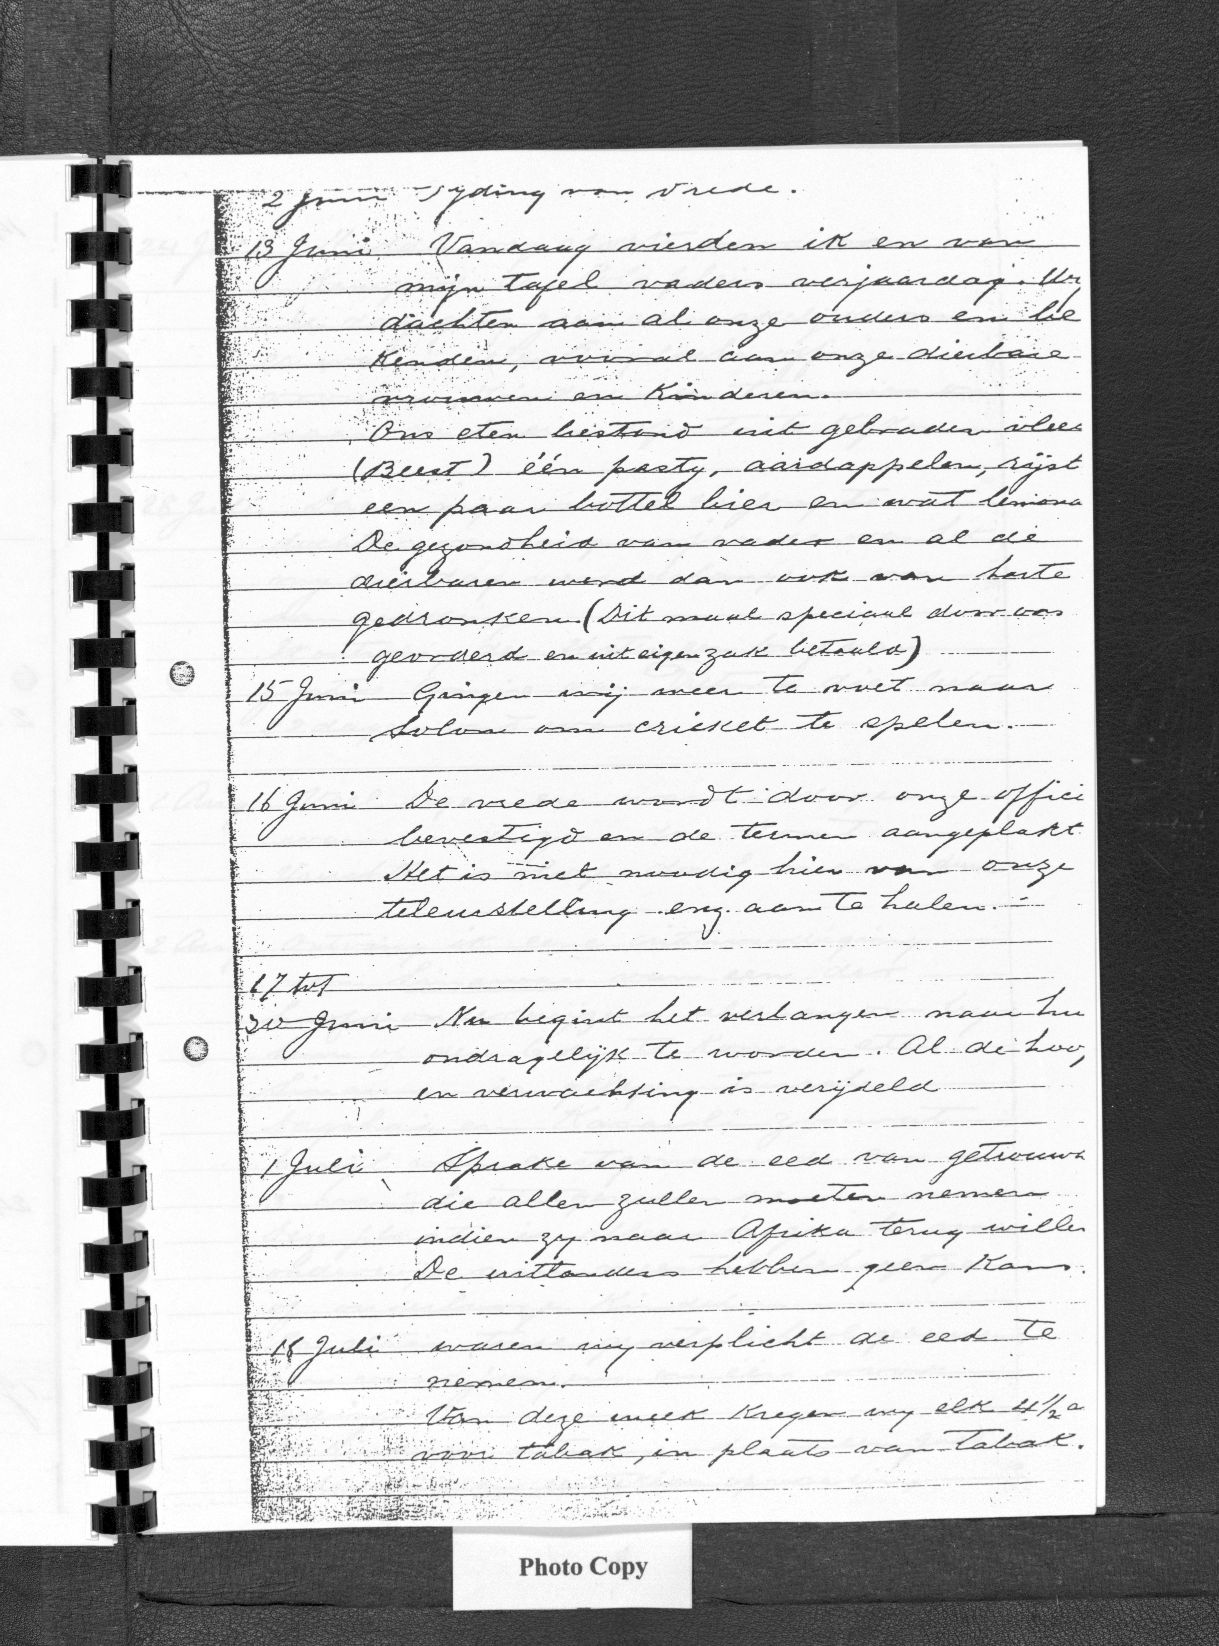 2 Juni Tyding van Vrede.
13 Juni Vandaag vierden ik en van
mijn tafel vaders verjaardag. Wy
dachten aan al onze ouders en be
kenden, vooral aan onze dierbare
vrouwen en Kinderen.
Ons eten bestond uit gebraden vlees
(Beest) één pasty, aardappelen, rijst
een paar bottel bier en wat limona
De gezondheid van vader en al de
dierbaren werd dan ook van harte
gedronken (Dit maal speciaal door ons
georderd en uit eigen zak betaald)
15 Juni Gingen wij weer te voet naar
Solon om cricket te spelen.
16 Juni De vrede wordt door onze offici
bevestigd en de termen aangeplakt
Het is niet noodig hier van onze
teleurstelling enz. aan te halen.-
17 tot
30 Juni Nu begint het verlangen naar hu
ondragelijk te worden. Al de hoo
en verwachting is verijdeld
1 Juli Sprake van de eed van getrouwh
die allen zullen moeten nemen
indien zy naar Afrika terug willen
De uitlanders hebben geen Kans.
18 Juli waren wy verplicht de eed te
nemen.
Van deze week Kregen wy elk 4½ d
voor tabak, in plaats van Tabak.
Photo Copy